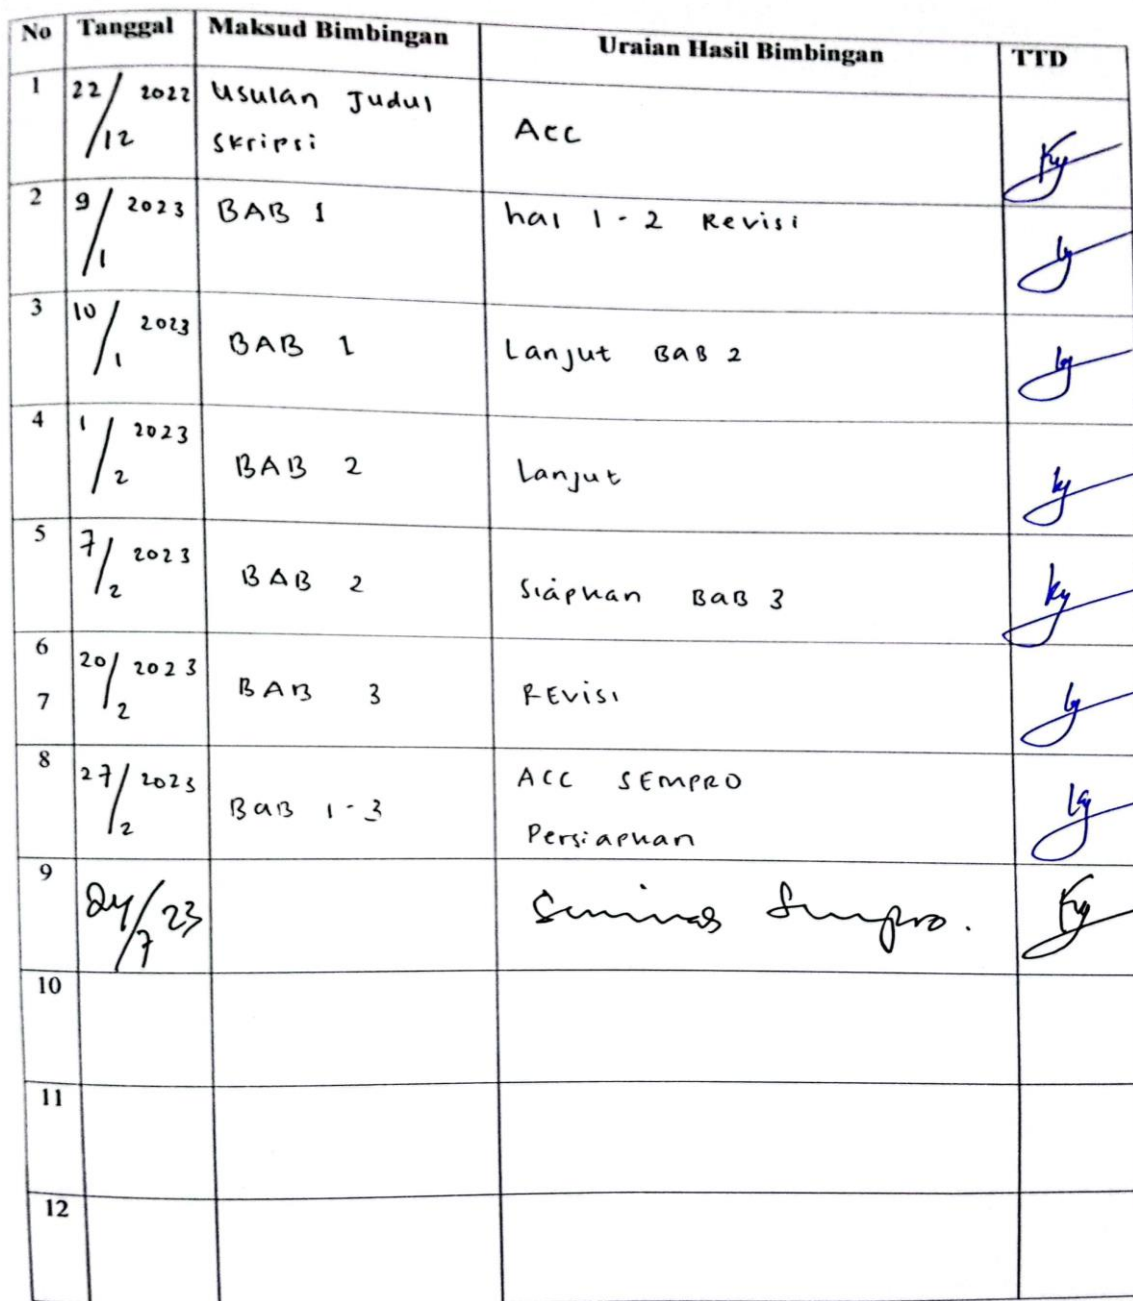 No Tanggal Maksud Bimbingan Uraian Hasil Bimbingan TTD
1 22/12 2022 Usulan Judul Skripsi Acc
2 9/1 2023 BAB 1 hal 1-2 Revisi
3 10/1 2023 BAB 1 Lanjut BAB 2
4 1/2 2023 BAB 2 Lanjut
5 7/2 2023 BAB 2 Siapkan BAB 3
6
7 20/2 2023 BAB 3 REVISI
8 27/2 2023 BAB 1-3 ACC SEMPRO
Persiapkan
9 24/7 23 Sempro.
10
11
12